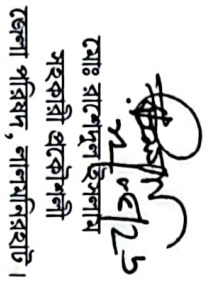 মোঃ রাশেদুল ইসলাম
সহকারী প্রকৌশলী
জেলা পরিষদ, লালমনিরহাট।